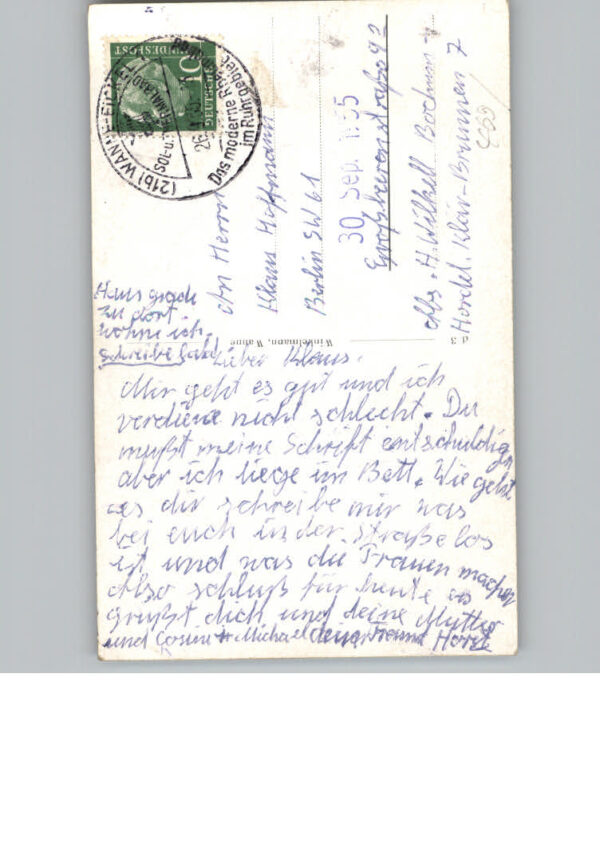 DEUTSCHE BUNDESPOST
10
(21b) WANNE-EICKEL
SOL- u. THERMALBAD
Das moderne
im Ruhrgebiet
An Herrn
Klaus Hoffmann
Berlin SW 61
30. Sep. 1955
Großbeerenstraße 92
Abs. H. Bochum
Hordel. Klein-Brunnen 7
Winkelmann, Wanne
d 3
Haus grade
zu dort
wohne ich.
schreibe bald
Lieber Klaus.
Mir geht es gut und ich
verdiene nicht schlecht. Du
mußt meine Schrift entschuldign
aber ich liege im Bett. Wie geht
es dir schreibe mir was
bei euch in der Straße los
ist und was die Frauen machen
Also schluß für heute es
grüßt dich und deine Mutter
und Michael dein Freund Horst